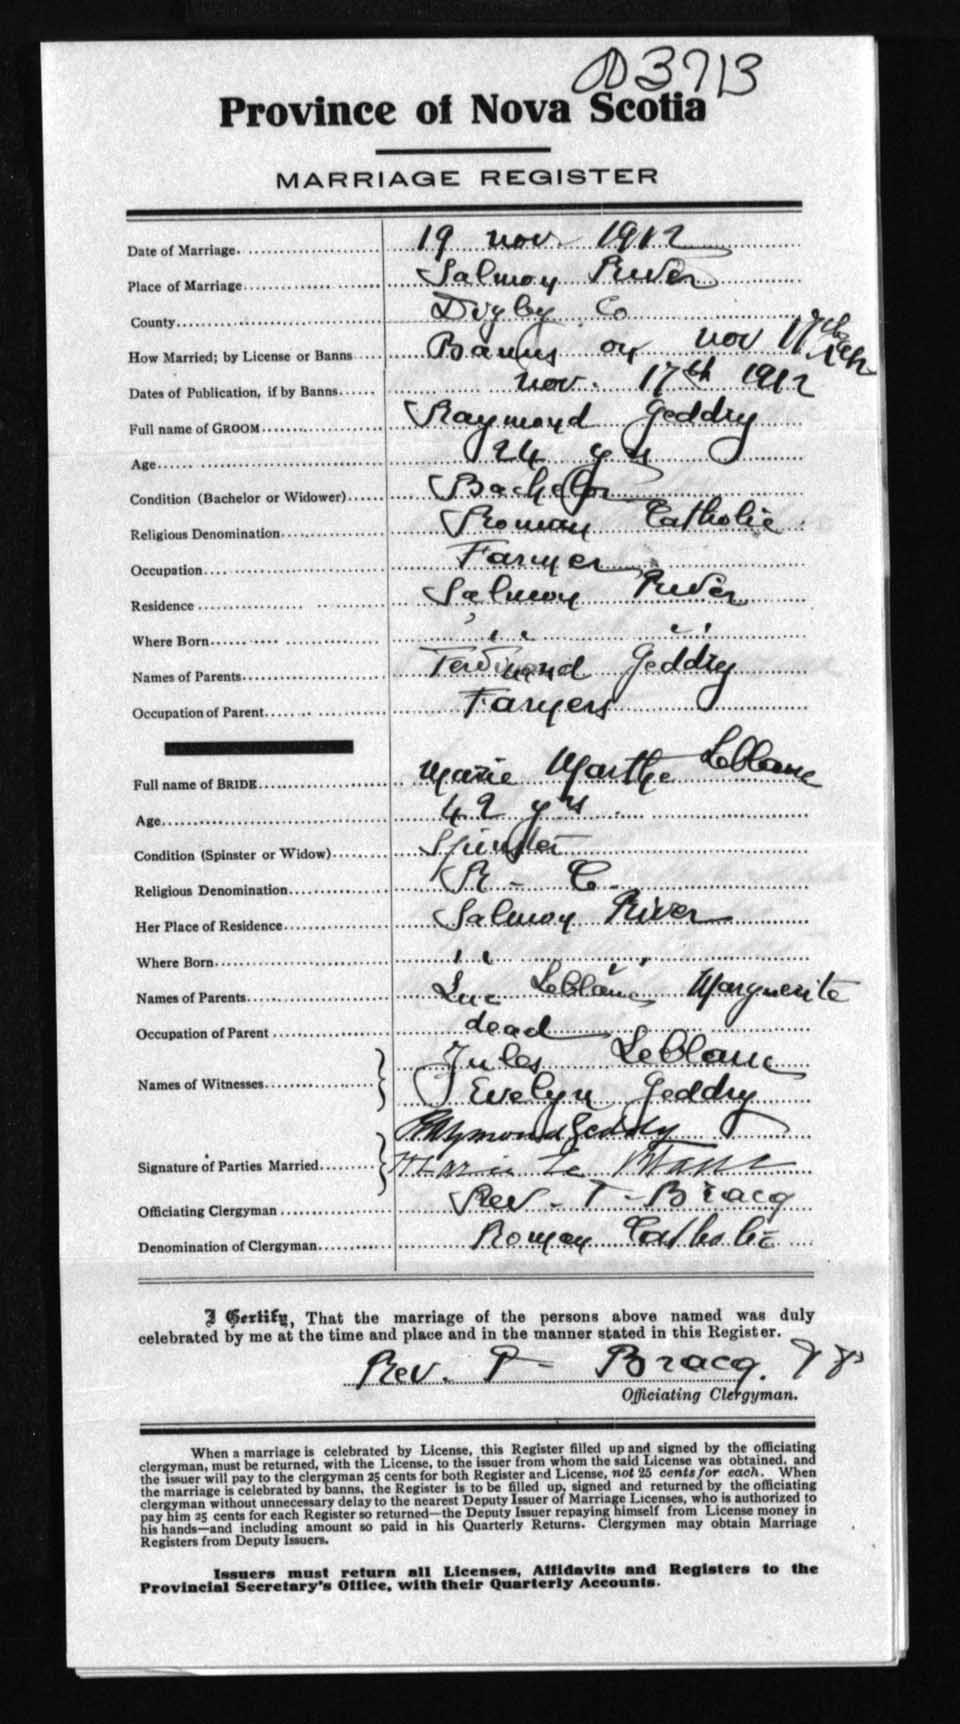 3713
Province of Nova Scotia
MARRIAGE REGISTER
Date of Marriage 19 nov. 1912
Place of Marriage Salmon River
County Digby Co
How Married; by License or Banns Banns on nov 17th
Dates of Publication, if by Banns nov. 17th 1912
Full name of GROOM Raymond Geddry
Age 24 yrs
Condition (Bachelor or Widower) Bachelor
Religious Denomination Roman Catholic
Occupation Farmer
Residence Salmon River
Where Born " "
Names of Parents Ferdinand Geddry
Occupation of Parent Farmers
Full name of BRIDE Marie Marthe Leblanc
Age 42 yrs.
Condition (Spinster or Widow) Spinster
Religious Denomination R - C.
Her Place of Residence Salmon River
Where Born " "
Names of Parents Luc Leblanc Marguerite
Occupation of Parent dead
Names of Witnesses Jules Leblanc
Evelyn Geddry
Signature of Parties Married Raymond Geddry
Marie Le Blanc
Officiating Clergyman Rev. - T - Bracq
Denomination of Clergyman Roman Catholic
I Certify, That the marriage of the persons above named was duly
celebrated by me at the time and place and in the manner stated in this Register.
Rev. P - Bracq.
Officiating Clergyman.
When a marriage is celebrated by License, this Register filled up and signed by the officiating
clergyman, must be returned, with the License, to the issuer from whom the said License was obtained, and
the issuer will pay to the clergyman 25 cents for both Register and License, not 25 cents for each. When
the marriage is celebrated by banns, the Register is to be filled up, signed and returned by the officiating
clergyman without unnecessary delay to the nearest Deputy Issuer of Marriage Licenses, who is authorized to
pay him 25 cents for each Register so returned—the Deputy Issuer repaying himself from License money in
his hands—and including amount so paid in his Quarterly Returns. Clergymen may obtain Marriage
Registers from Deputy Issuers.
Issuers must return all Licenses, Affidavits and Registers to the
Provincial Secretary's Office, with their Quarterly Accounts.